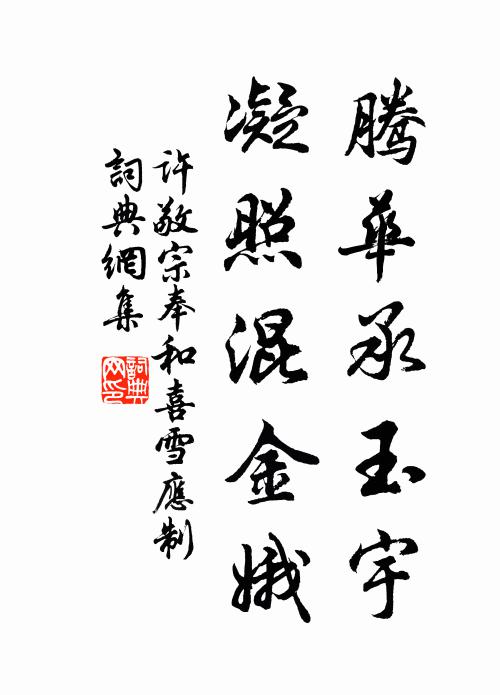 騰華承玉宇
凝照混金娥
許敬宗奉和喜雪應制
詞典網集
詞典網印